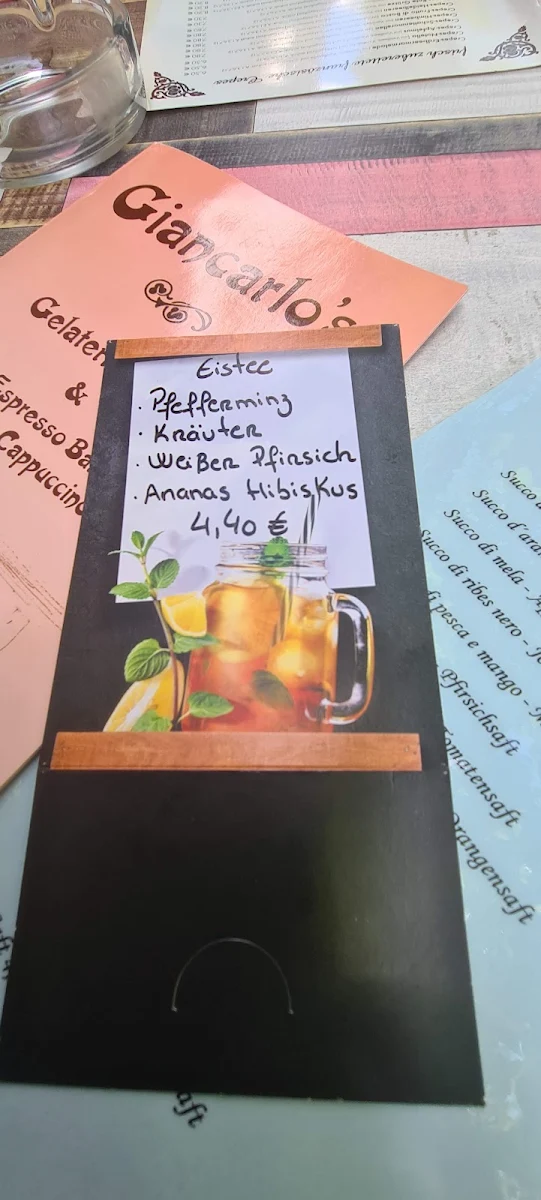 frisch zubereitete französische Crepes
Giancarlo's
Gelater
&
Espresso Ba
Cappuccino
Eistee
· Pfefferminz
· Kräuter
· Weißer Pfirsich
· Ananas Hibiskus
4,40 €
Succo d
Succo d'aran
Succo di mela - A
Succo di ribes nero - Jo
pesca e mango - M
Pfirsichsaft
Tomatensaft
Orangensaft
aft